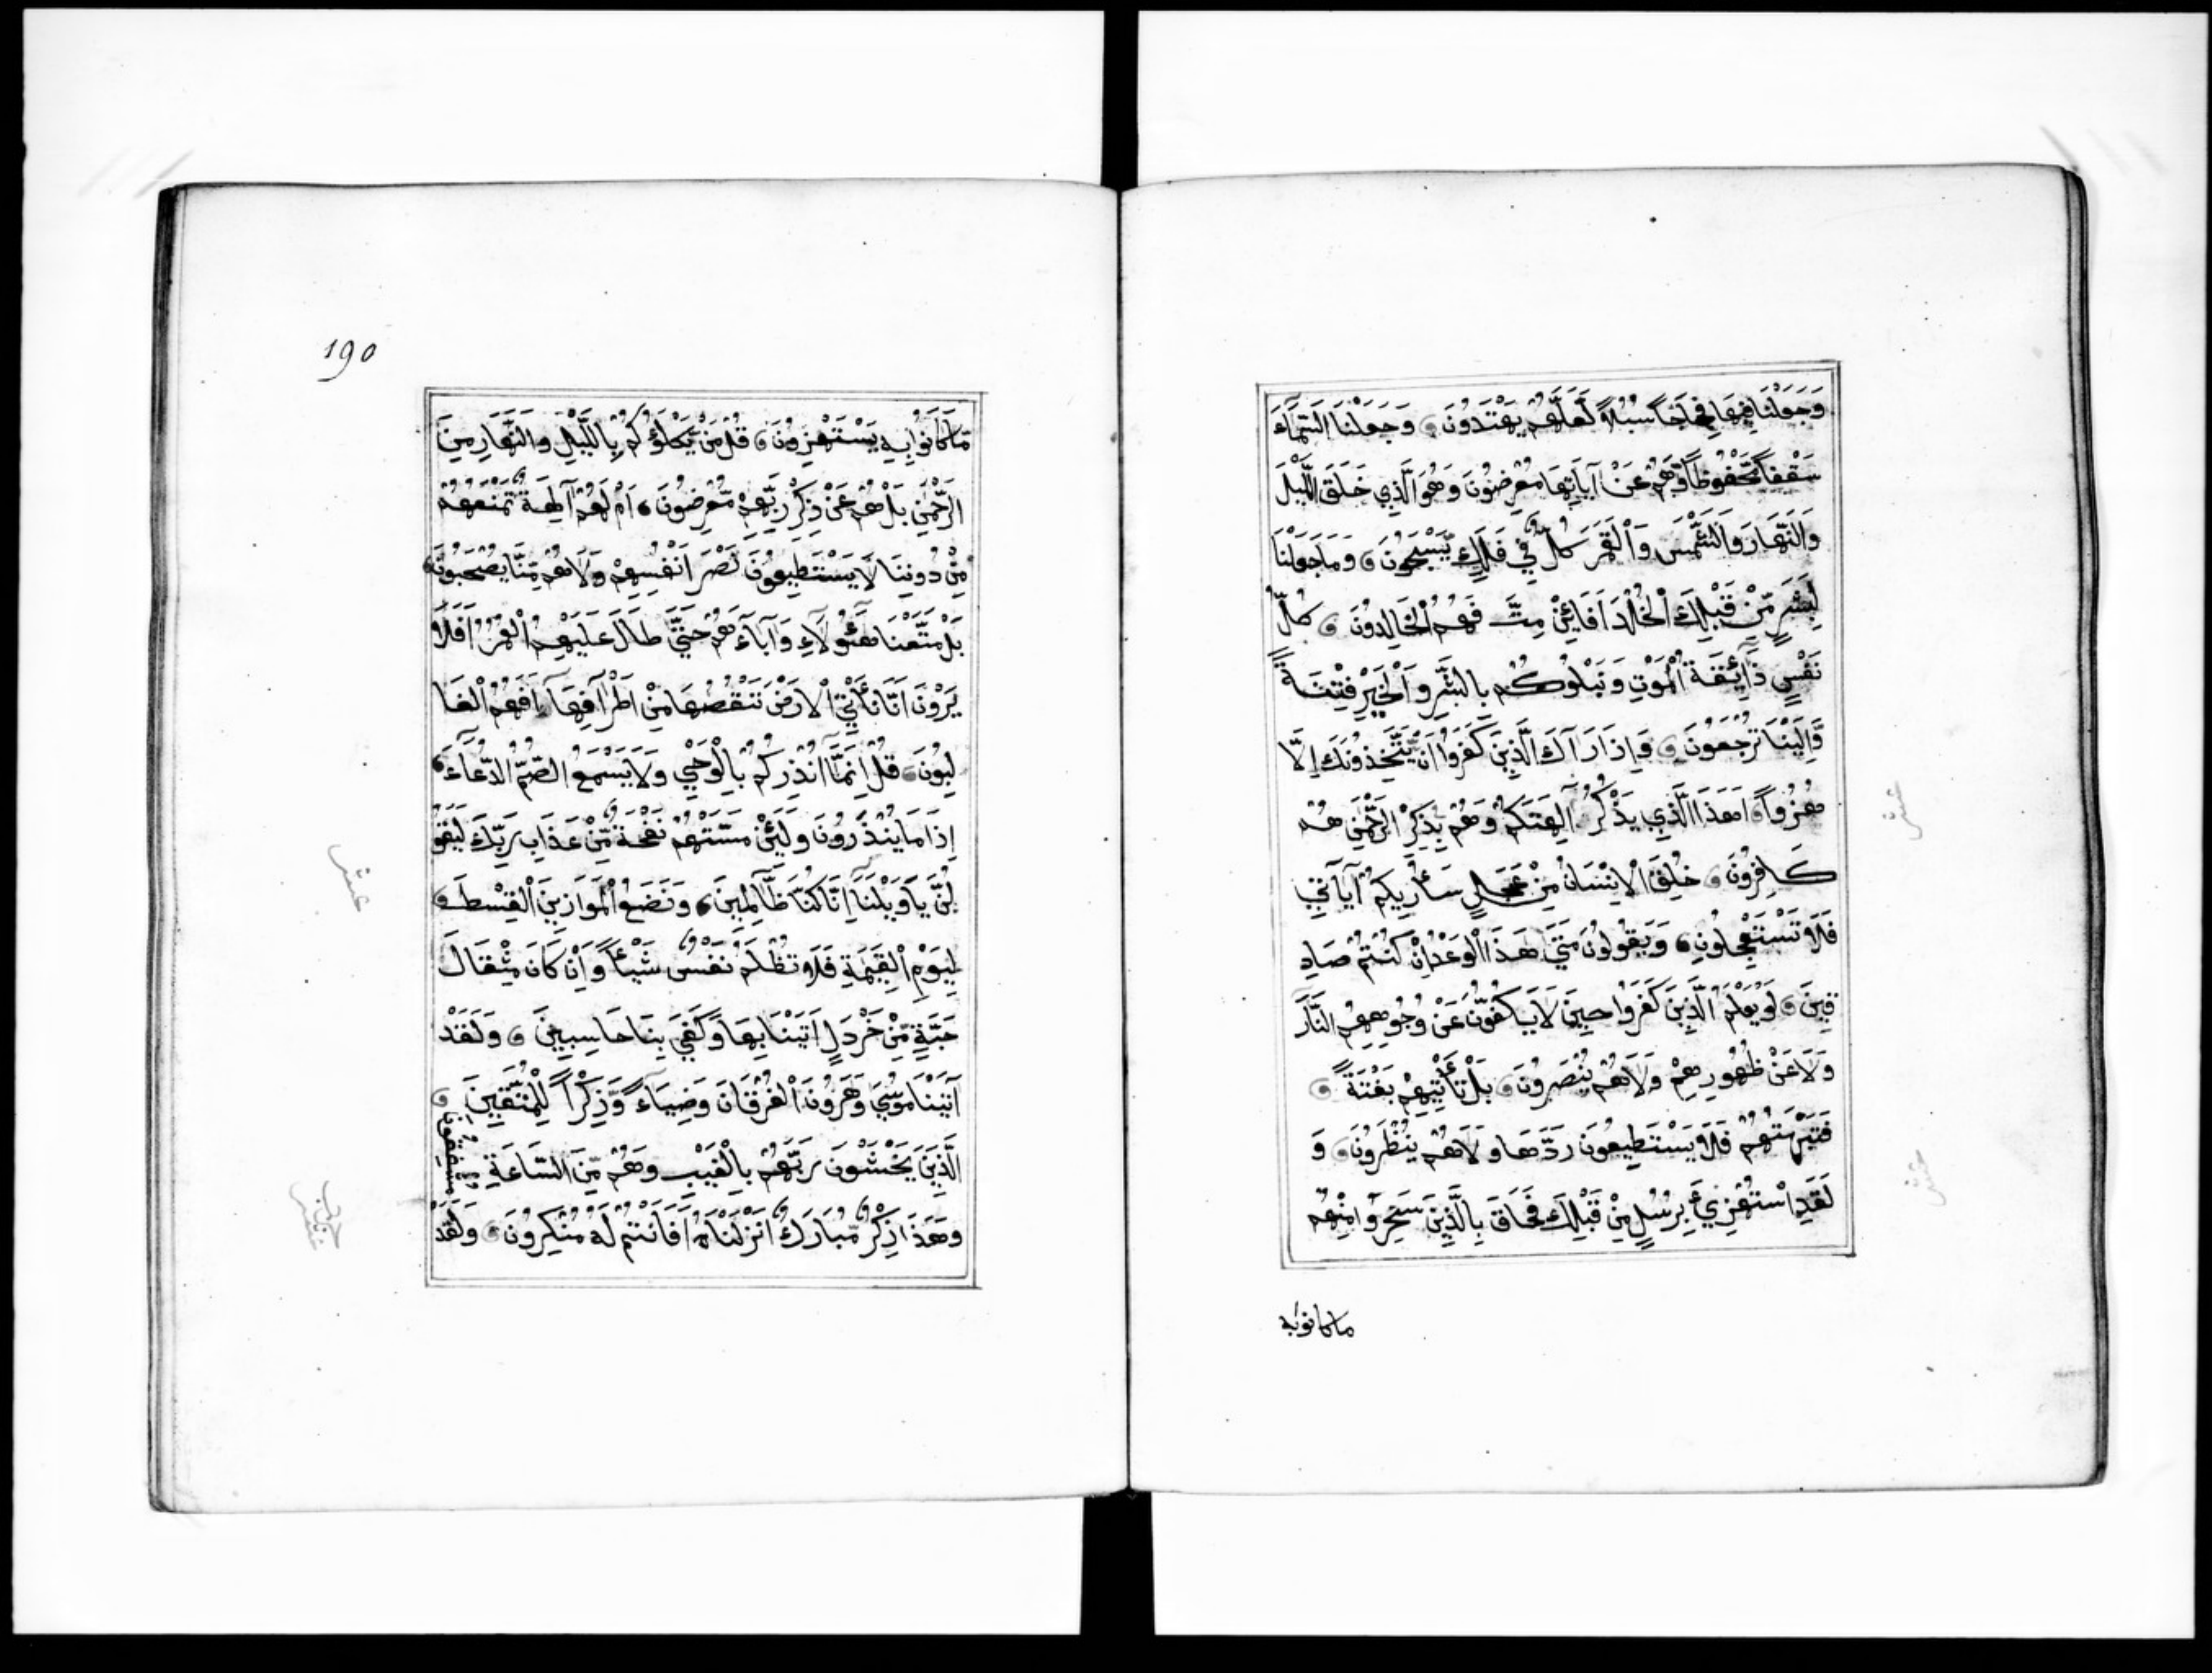 وَجَعَلْنَا فِيهَا فِجَاجًا سُبُلاً لَعَلَّهُمْ يَهْتَدُونَ وَجَعَلْنَا السَّمَآءَ
سَقْفاً مَّحْفُوظاً وَّهُمْ عَنْ آيَاتِهَا مُعْرِضُونَ وَهُوَ الَّذِي خَلَقَ اللَّيْلَ
وَالنَّهَارَ وَالشَّمْسَ وَالْقَمَرَ كُلٌّ فِي فَلَكٍ يَّسْبَحُونَ وَمَا جَعَلْنَا
لِبَشَرٍ مِّنْ قَبْلِكَ الْخُلْدَ اَفَائِنْ مِتَّ فَهُمُ الْخَالِدُونَ كُلُّ
نَفْسٍ ذَآئِقَةُ الْمَوْتِ وَنَبْلُوكُمْ بِالشَّرِّ وَالْخَيْرِ فِتْنَةً
وَّاِلَيْنَا تُرْجَعُونَ وَاِذَا رَآكَ الَّذِينَ كَفَرُوا اَنْ يَّتَّخِذُونَكَ اِلَّا
هُزُواً اَهَذَا الَّذِي يَذْكُرُ آلِهَتَكُمْ وَهُمْ بِذِكْرِ الرَّحْمَنِ هُمْ
كَافِرُونَ خُلِقَ الْاِنْسَانُ مِنْ عَجَلٍ سَأُرِيكُمْ آيَاتِي
فَلَا تَسْتَعْجِلُونِ وَيَقُولُونَ مَتَى هَذَا الْوَعْدُ اِنْ كُنْتُمْ صَادِ
قِينَ لَوْ يَعْلَمُ الَّذِينَ كَفَرُوا حِينَ لَا يَكُفُّونَ عَنْ وُجُوهِهِمُ النَّارَ
وَلَا عَنْ ظُهُورِهِمْ وَلَا هُمْ يُنْصَرُونَ بَلْ تَأْتِيهِمْ بَغْتَةً
فَتَبْهَتُهُمْ فَلَا يَسْتَطِيعُونَ رَدَّهَا وَلَا هُمْ يُنْظَرُونَ وَ
لَقَدِ اسْتُهْزِئَ بِرُسُلٍ مِنْ قَبْلِكَ فَحَاقَ بِالَّذِينَ سَخِرُوا مِنْهُمْ
ما كانوا به
عشر
عشر
190
مَّا كَانُوا بِهِ يَسْتَهْزِؤُنَ قُلْ مَنْ يَّكْلَؤُكُمْ بِاللَّيْلِ وَالنَّهَارِ مِنَ
الرَّحْمَنِ بَلْ هُمْ عَنْ ذِكْرِ رَبِّهِمْ مُّعْرِضُونَ اَمْ لَهُمْ آلِهَةٌ تَمْنَعُهُمْ
مِنْ دُونِنَا لَا يَسْتَطِيعُونَ نَصْرَ اَنْفُسِهِمْ وَلَا هُمْ مِنَّا يُصْحَبُونَ
بَلْ مَتَّعْنَا هَؤُلَاءِ وَآبَاءَهُمْ حَتَّى طَالَ عَلَيْهِمُ الْعُمُرُ اَفَلَا
يَرَوْنَ اَنَّا نَأْتِي الْاَرْضَ نَنْقُصُهَا مِنْ اَطْرَافِهَا اَفَهُمُ الْغَا
لِبُونَ قُلْ اِنَّمَا اُنْذِرُكُمْ بِالْوَحْيِ وَلَا يَسْمَعُ الصُّمُّ الدُّعَاءَ
اِذَا مَا يُنْذَرُونَ وَلَئِنْ مَسَّتْهُمْ نَفْحَةٌ مِّنْ عَذَابِ رَبِّكَ لَيَقُو
لُنَّ يَا وَيْلَنَا اِنَّا كُنَّا ظَالِمِينَ وَنَضَعُ الْمَوَازِينَ الْقِسْطَ
لِيَوْمِ الْقِيَمَةِ فَلَا تُظْلَمُ نَفْسٌ شَيْئاً وَاِنْ كَانَ مِثْقَالَ
حَبَّةٍ مِّنْ خَرْدَلٍ اَتَيْنَا بِهَا وَكَفَى بِنَا حَاسِبِينَ وَلَقَدْ
آتَيْنَا مُوسَى وَهَرُونَ الْفُرْقَانَ وَضِيَاءً وَّذِكْراً لِّلْمُتَّقِينَ
الَّذِينَ يَخْشَوْنَ رَبَّهُمْ بِالْغَيْبِ وَهُمْ مِّنَ السَّاعَةِ مُشْفِقُونَ
وَهَذَا ذِكْرٌ مُّبَارَكٌ اَنْزَلْنَاهُ اَفَاَنْتُمْ لَهُ مُنْكِرُونَ وَلَقَدْ
عشر